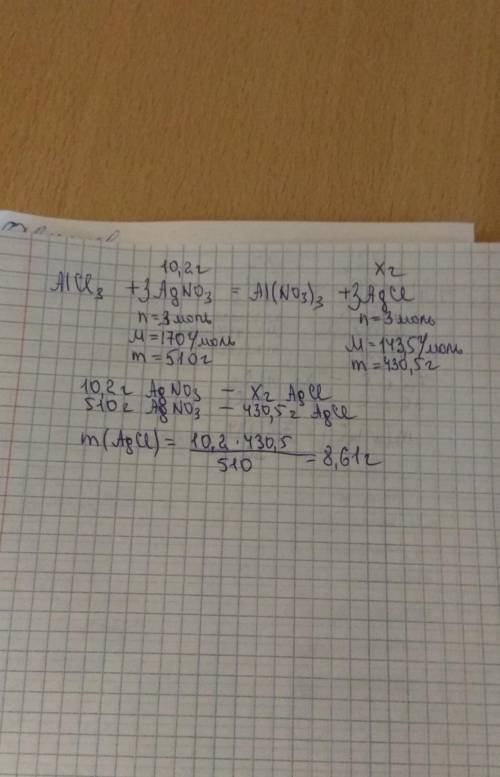 10,2г Xг
AlCl₃ + 3AgNO₃ = Al(NO₃)₃ + 3AgCl
n = 3 моль n = 3 моль
M = 170 г/моль M = 143,5 г/моль
m = 510 г m = 430,5 г
10,2 г AgNO₃ – Xг AgCl
510 г AgNO₃ – 430,5 г AgCl
m(AgCl) = 10,2 · 430,5 / 510 = 8,61 г